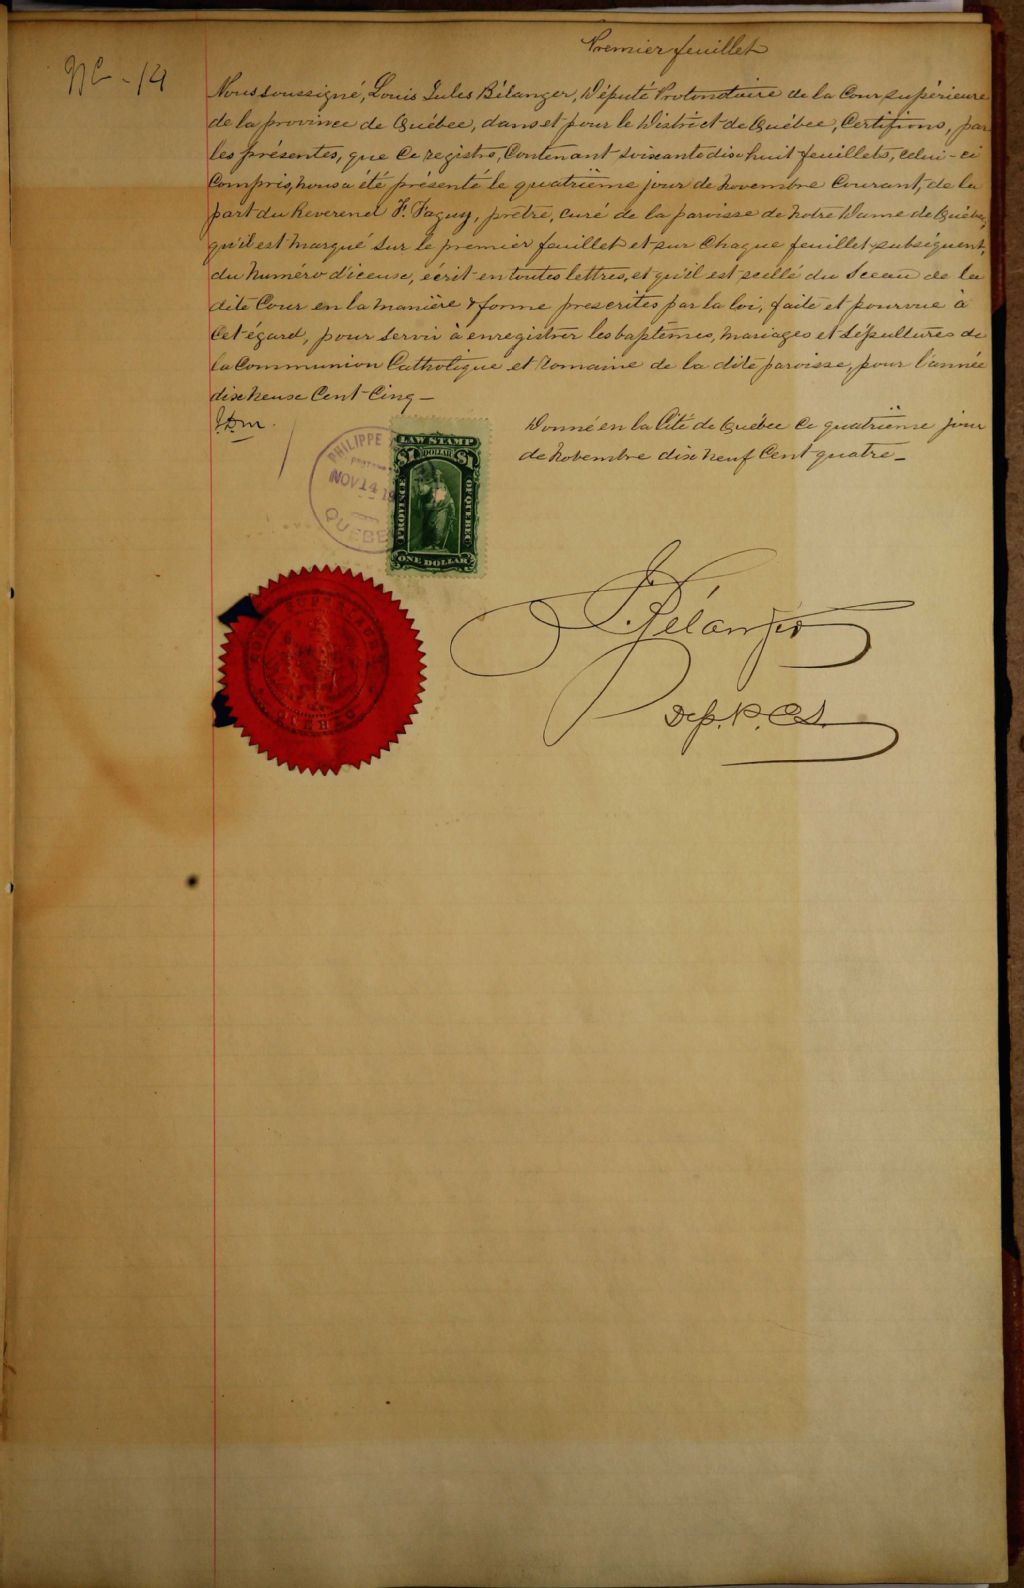 Premier feuillet
NC - 14
Nous soussigné, Louis Jules Bélanger, Député Protonotaire de la Cour supérieure
de la province de Québec, dans et pour le District de Québec, Certifions, par
les présentes, que Ce registre, Contenant soixante dix huit feuillets, celui-ci
Compris, nous a été présenté le quatrième jour de novembre Courant, de la
part du Reverend F. Faguy, prêtre, curé de la paroisse de Notre Dame de Québec,
qu'il est marqué sur le premier feuillet et sur Chaque feuillet subséquent,
du numéro d'iceux, écrit en toutes lettres, et qu'il est scellé du Sceau de la
dite Cour en la manière & forme prescrites par la loi, faite et pourvue à
Cet égard, pour servir à enregistrer les baptêmes, mariages et sépultures de
la Communion Catholique et Romaine de la dite paroisse, pour l'année
dix neuf Cent Cinq —
Donné en la Cité de Québec Ce quatrième jour
de Novembre dix neuf Cent quatre —
PHILIPPE
NOV 14
QUEBEC
LAW STAMP
$1 DOLLAR $1
PROVINCE OF QUEBEC
ONE DOLLAR
COUR SUPERIEURE
QUEBEC
L. J. Bélanger
Dep. P. C. S.